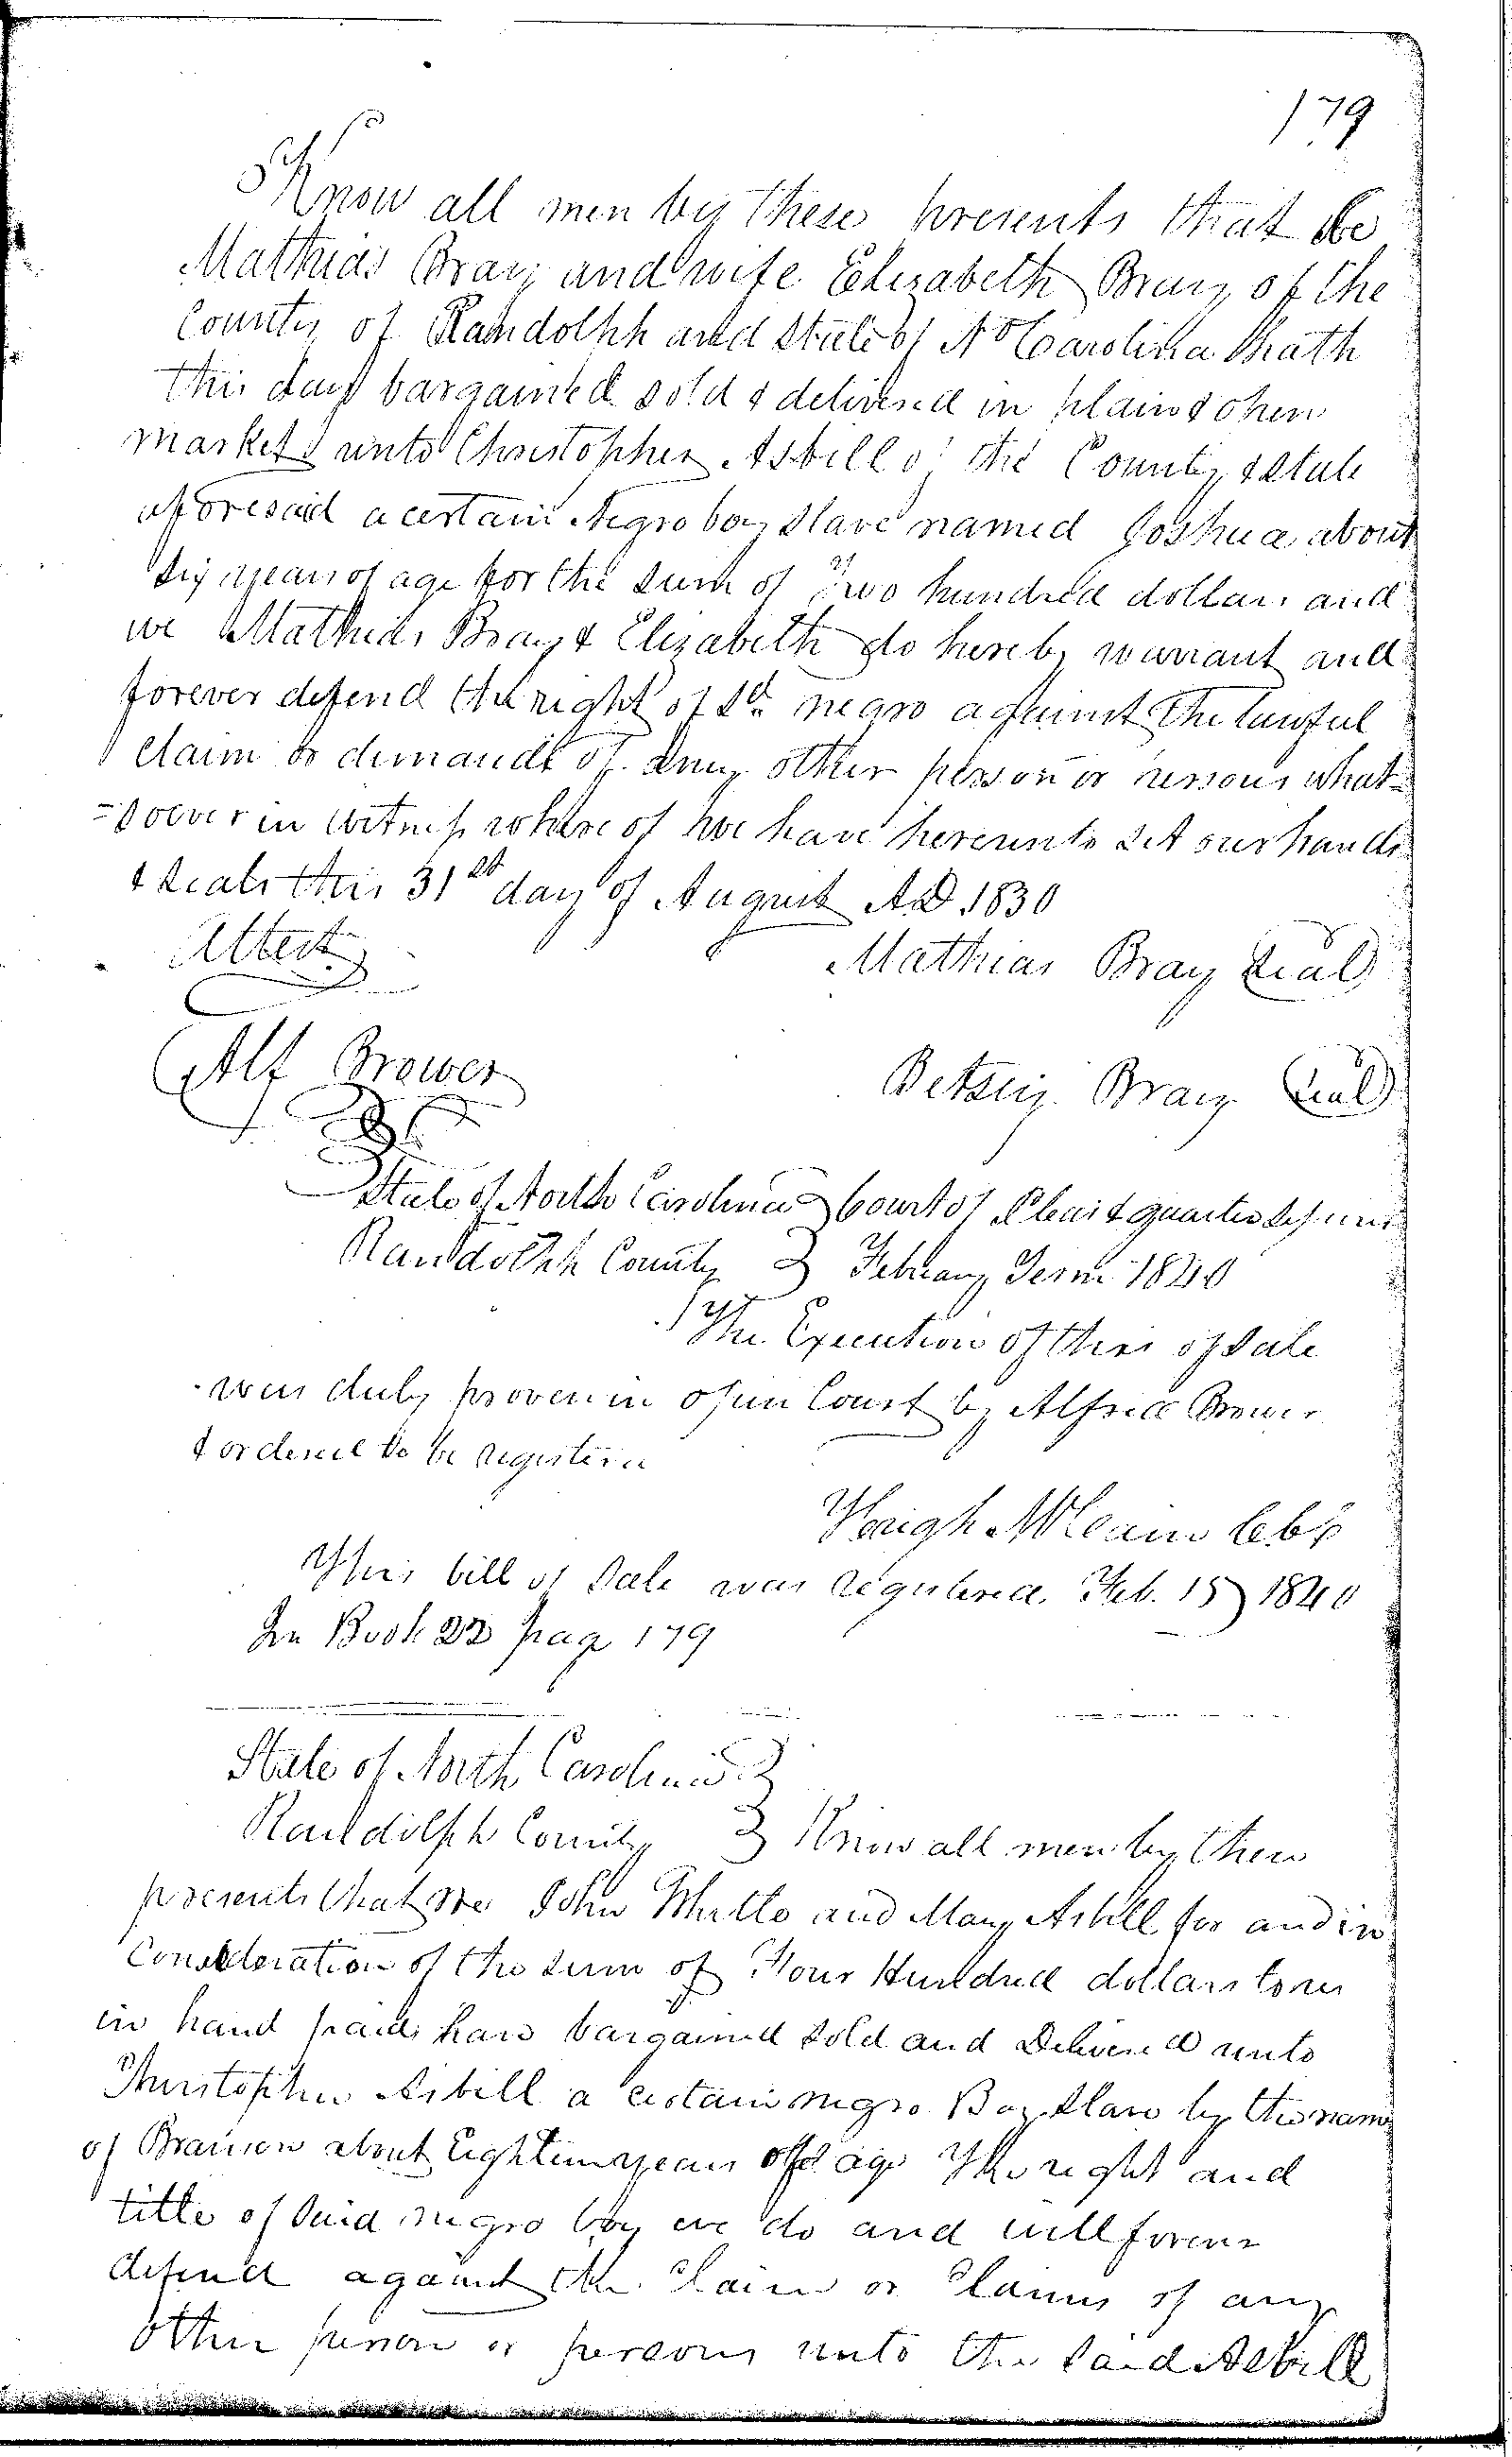 179
Know all men by these presents that we
Mathias Bray and wife Elizabeth Bray of the
County of Randolph and State of No Carolina Hath
this day bargained sold & delivered in plain & open
market unto Christopher Asbill of the County & State
aforesaid a certain Negro boy Slave named Joshua about
Six years of age for the sum of Two hundred dollars and
we Mathias Bray & Elizabeth do hereby warrant and
forever defend the right of sd negro against the lawful
claim or demands of any other person or persons what-
=soever in witness whereof we have hereunto set our hands
& seals this 31st day of August AD 1830
Attest
Mathias Bray Seal
Alf Brower
Betsey Bray Seal
State of North Carolina } Court of Pleas & quarter Sessions
Randolph County } February Term 1840
The Execution of this of Sale
was duly proven in open Court by Alfred Brower
& ordered to be registered
Hugh McCain
This bill of Sale was registered Feb. 15 1840
In Book 22 page 179
State of North Carolina }
Randolph County } Know all men by these
presents that we John and Mary Asbill for and in
Consideration of the sum of Four Hundred dollars to us
in hand paid have bargained sold and Delivered unto
Christopher Asbill a certain negro Boy Slave by the name
of about Eighteen years of age The right and
title of Said negro boy we do and will forever
defend against the Claim or Claims of any
other person or persons unto the said Asbill